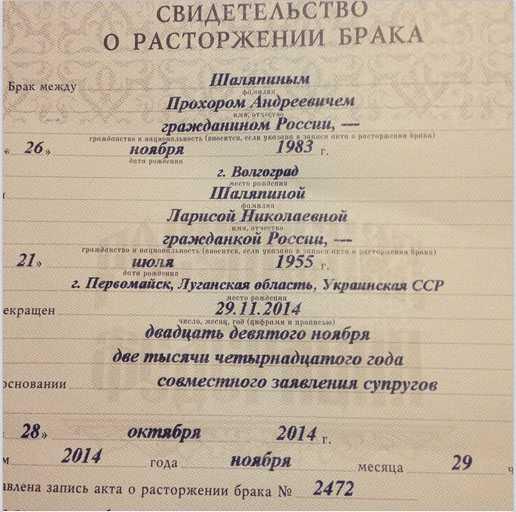 СВИДЕТЕЛЬСТВО
О РАСТОРЖЕНИИ БРАКА
Брак между Шаляпиным
фамилия
Прохором Андреевичем
имя, отчество
гражданином России, —
гражданство и национальность (вносится, если указано в записи акта о расторжении брака)
« 26» ноября 1983 г.
дата рождения
г. Волгоград
место рождения
Шаляпиной
фамилия
Ларисой Николаевной
имя, отчество
гражданкой России, —
гражданство и национальность (вносится, если указано в записи акта о расторжении брака)
21» июля 1955 г.
дата рождения
г. Первомайск, Луганская область, Украинская ССР
место рождения
екращен 29.11.2014
число, месяц, год (цифрами и прописью)
двадцать девятого ноября
две тысячи четырнадцатого года
основании совместного заявления супругов
28» октября 2014 г.
2014 года ноября месяца 29 ч
авлена запись акта о расторжении брака № 2472